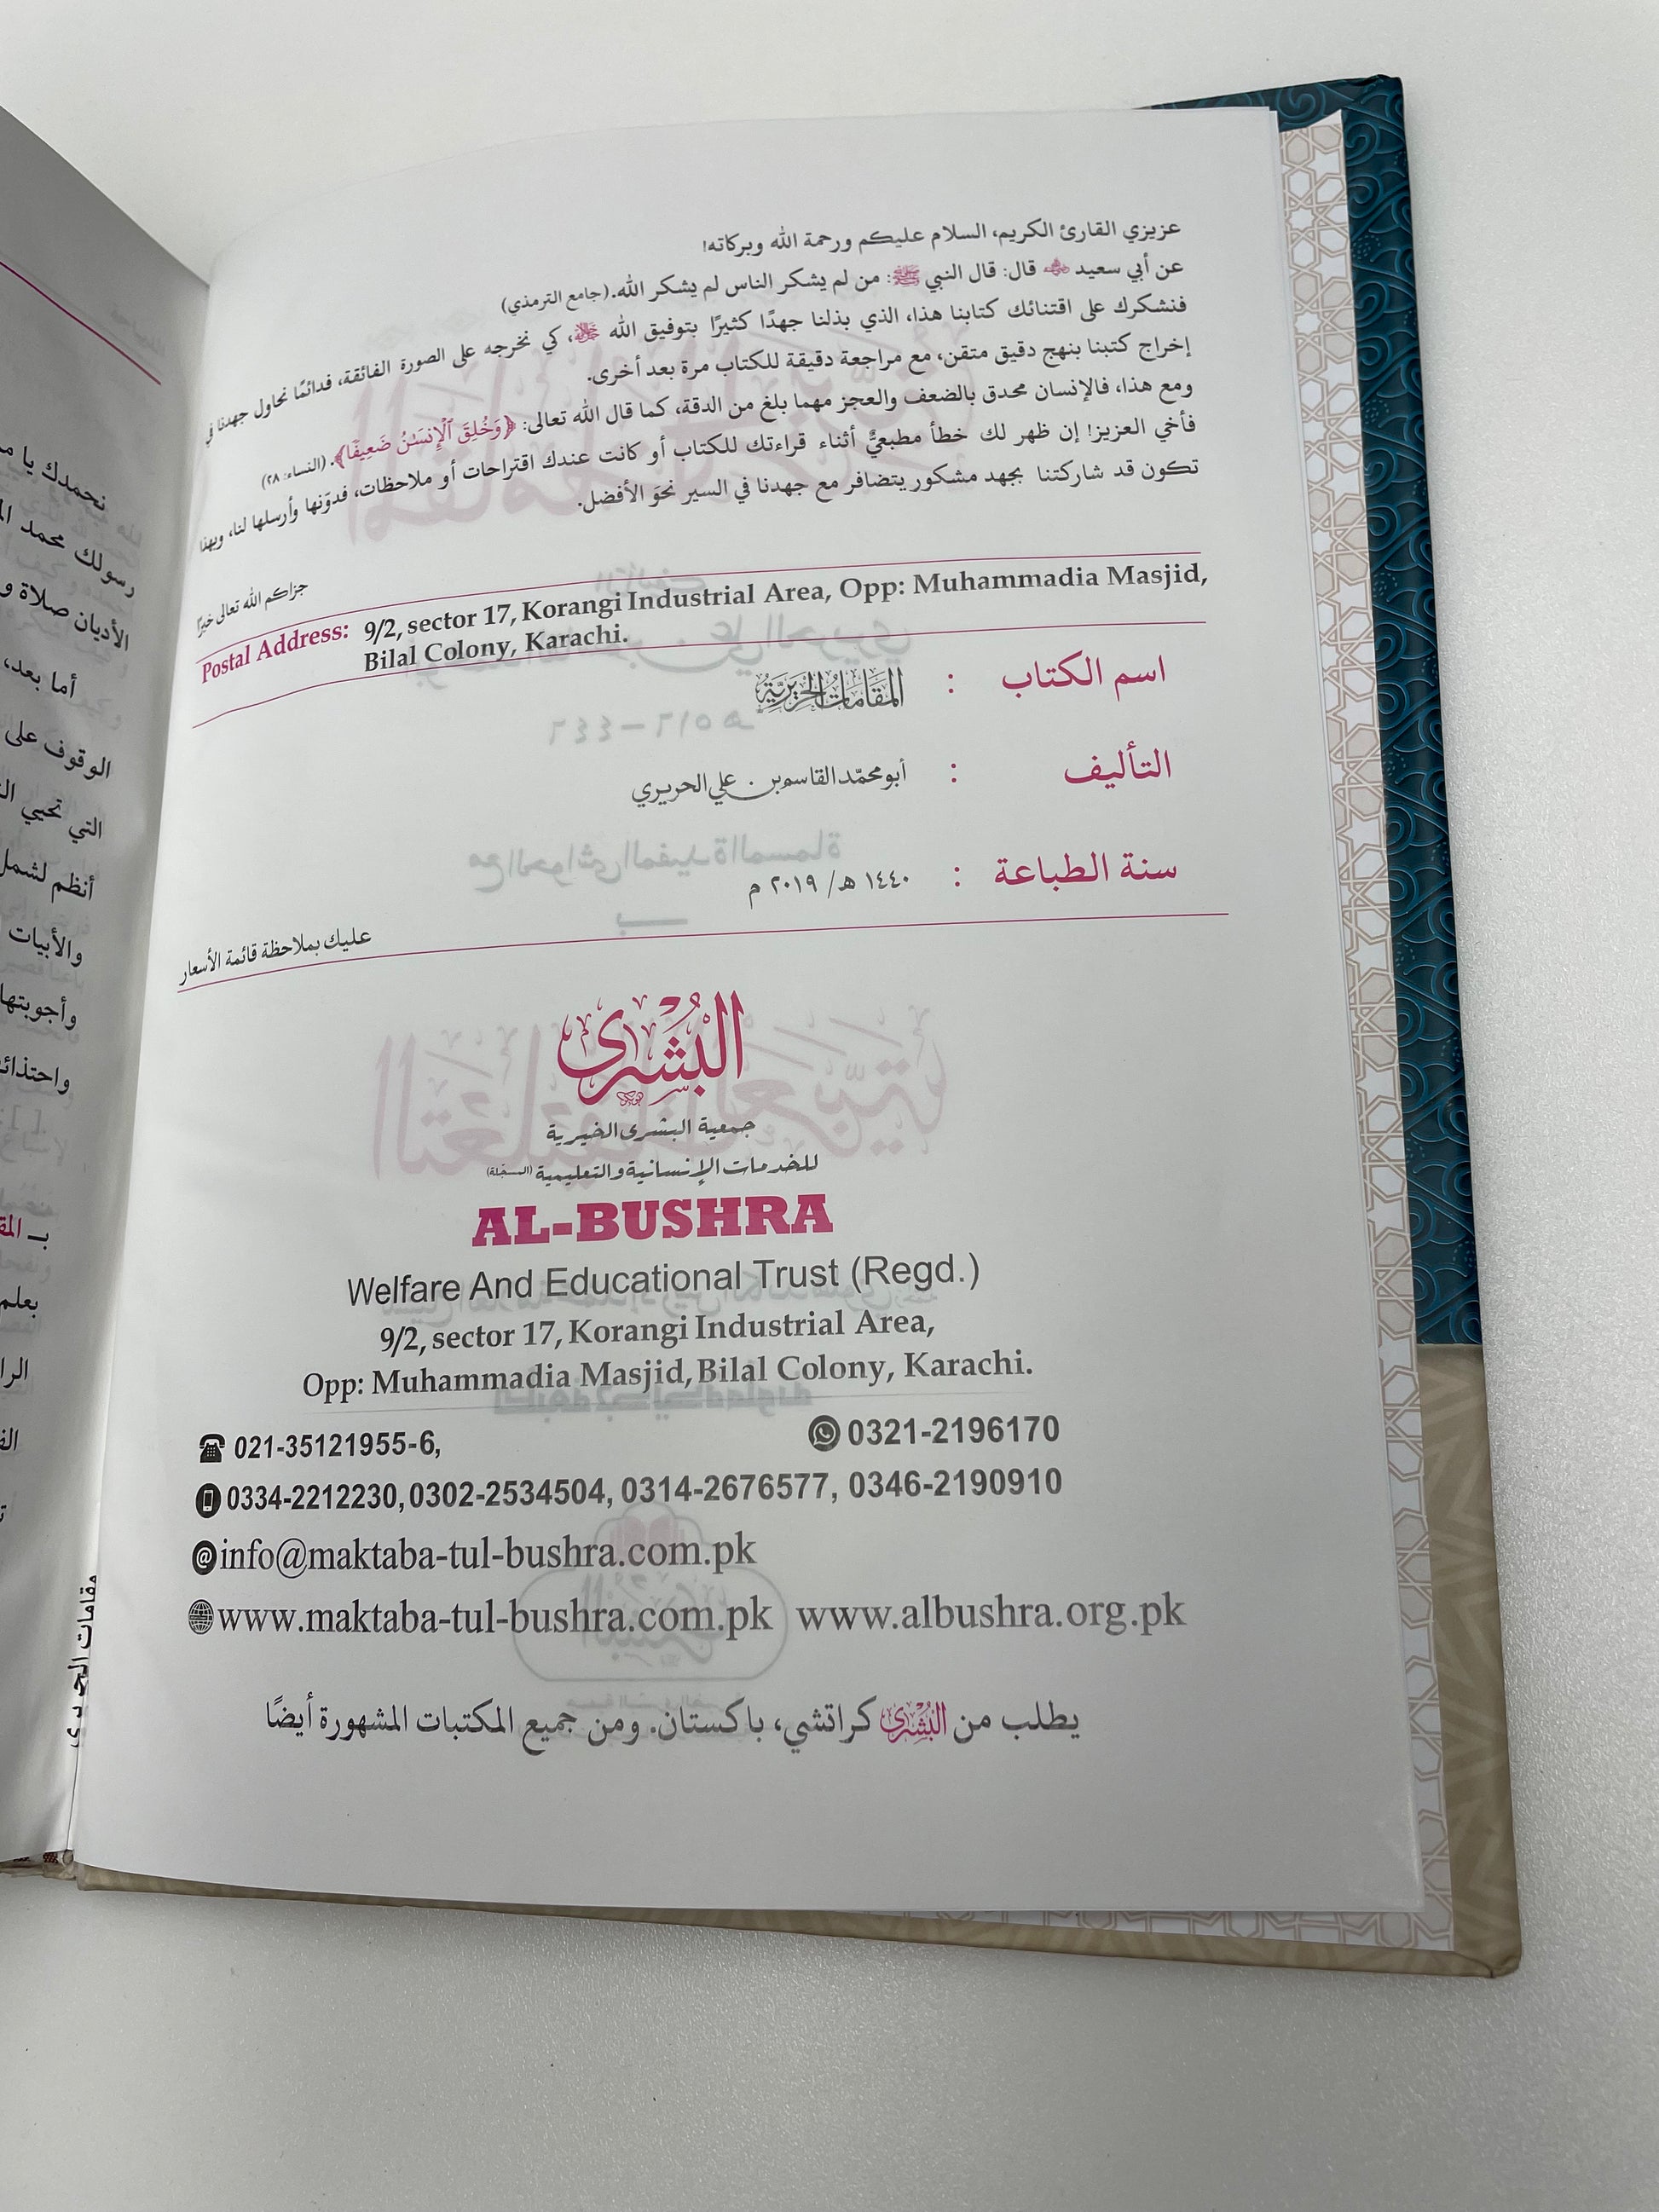 عزيزي القارئ الكريم، السلام عليكم ورحمة الله وبركاته!
عن أبي سعيد ﷺ قال: قال النبي ﷺ: من لم يشكر الناس لم يشكر الله. (جامع الترمذي)
فنشكرك على اقتنائك كتابنا هذا، الذي بذلنا جهدًا كثيرًا بتوفيق الله ﷻ، كي نخرجه على الصورة الفائقة، فدائمًا نحاول جهدنا في
إخراج كتبنا بنهج دقيق متقن، مع مراجعة دقيقة للكتاب مرة بعد أخرى.
ومع هذا، فالإنسان محدق بالضعف والعجز مهما بلغ من الدقة، كما قال الله تعالى: ﴿وَخُلِقَ ٱلْإِنسَـٰنُ ضَعِيفًا﴾. (النساء: ٢٨)
فأخي العزيز! إن ظهر لك خطأ مطبعيٌّ أثناء قراءتك للكتاب أو كانت عندك اقتراحات أو ملاحظات، فدوّنها وأرسلها لنا، وبهذا
تكون قد شاركتنا بجهد مشكور يتضافر مع جهدنا في السير نحوَ الأفضل.
جزاكم الله تعالى خيرًا
Postal Address: 9/2, sector 17, Korangi Industrial Area, Opp: Muhammadia Masjid,
Bilal Colony, Karachi.
اسم الكتاب : المَقَامَاتُ الحَرِيرِيَّة
التأليف : أبو محمّد القاسم بن علي الحريري
سنة الطباعة : ١٤٤٠ هـ/ ٢٠١٩ م
عليك بملاحظة قائمة الأسعار
البُشْرى
جمعية البشرى الخيرية
للخدمات الإنسانية والتعليمية (المسجّلة)
AL-BUSHRA
Welfare And Educational Trust (Regd.)
9/2, sector 17, Korangi Industrial Area,
Opp: Muhammadia Masjid, Bilal Colony, Karachi.
021-35121955-6, 0321-2196170
0334-2212230, 0302-2534504, 0314-2676577, 0346-2190910
info@maktaba-tul-bushra.com.pk
www.maktaba-tul-bushra.com.pk www.albushra.org.pk
يطلب من البُشْرى كراتشي، باكستان. ومن جميع المكتبات المشهورة أيضًا
نحمدك يا
رسولك محمد
الأديان صلاة و
أما بعد،
الوقوف على
التي تحيي
أنظم لشمل
والأبيات
وأجوبتها